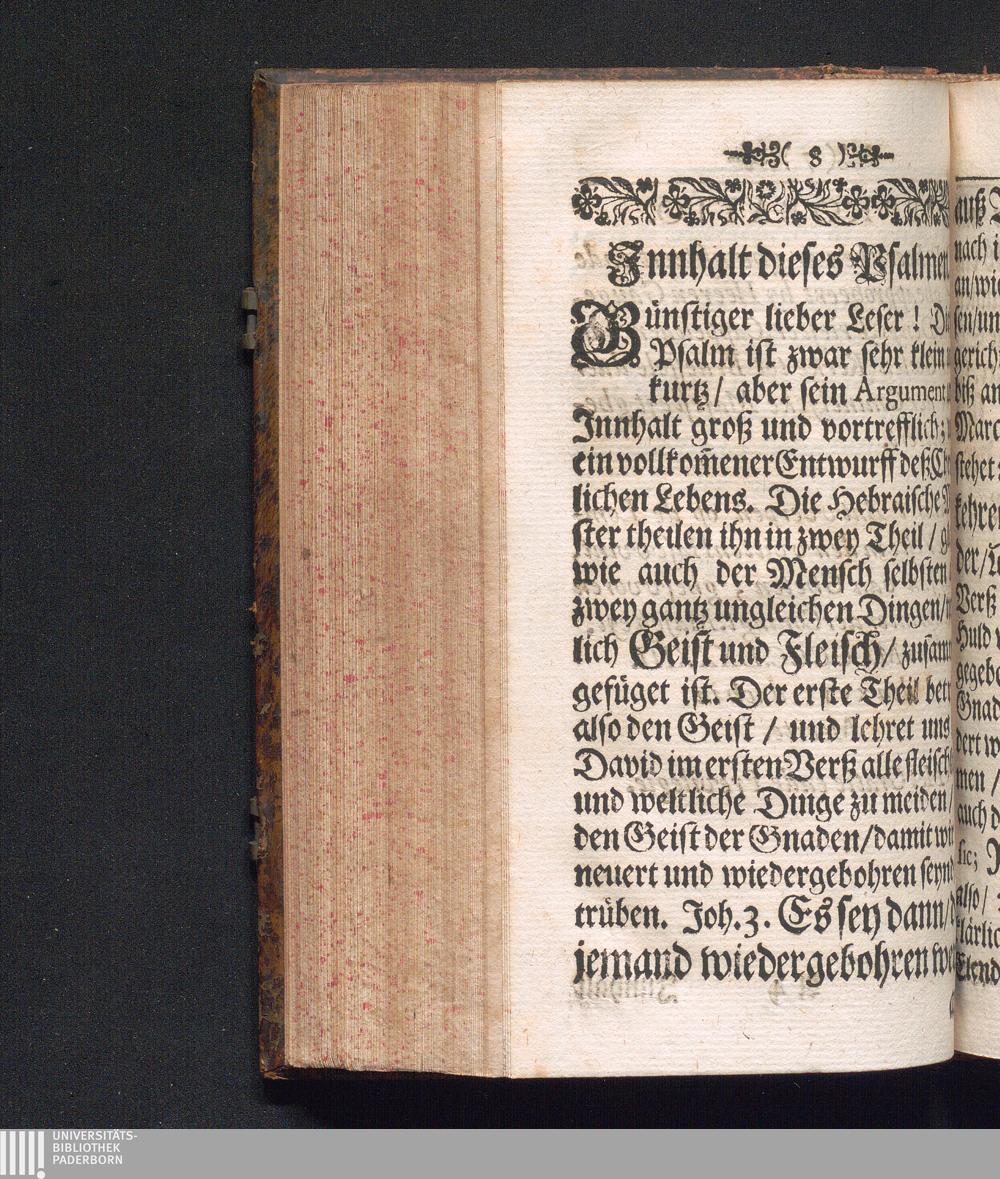 ( 8 )
Innhalt dieses Psalmen
Günstiger lieber Leser !
Psalm ist zwar sehr klein
kurtz / aber sein Argument
Innhalt groß und vortrefflich;
ein vollkom̃ener Entwurff deß
lichen Lebens. Die Hebraische
ster theilen ihn in zwey Theil /
wie auch der Mensch selbsten
zwey gantz ungleichen Dingen /
lich Geist und Fleisch / zusam
gefüget ist. Der erste Theil
also den Geist / und lehret uns
David im ersten Verß alle
und weltliche Dinge zu meiden /
den Geist der Gnaden / damit
neuert und wiedergebohren seynd
trüben. Joh. 3. Es sey dann /
jemand wiedergebohren
auß
nach
an / wie
sen / un
gerich
biß an
Marc
stehet
kehre
der /
Verß
Huld
gegebe
Gnad
dert
men /
auch
sic;
also /
klärlic
Elend
UNIVERSITÄTS-
BIBLIOTHEK
PADERBORN